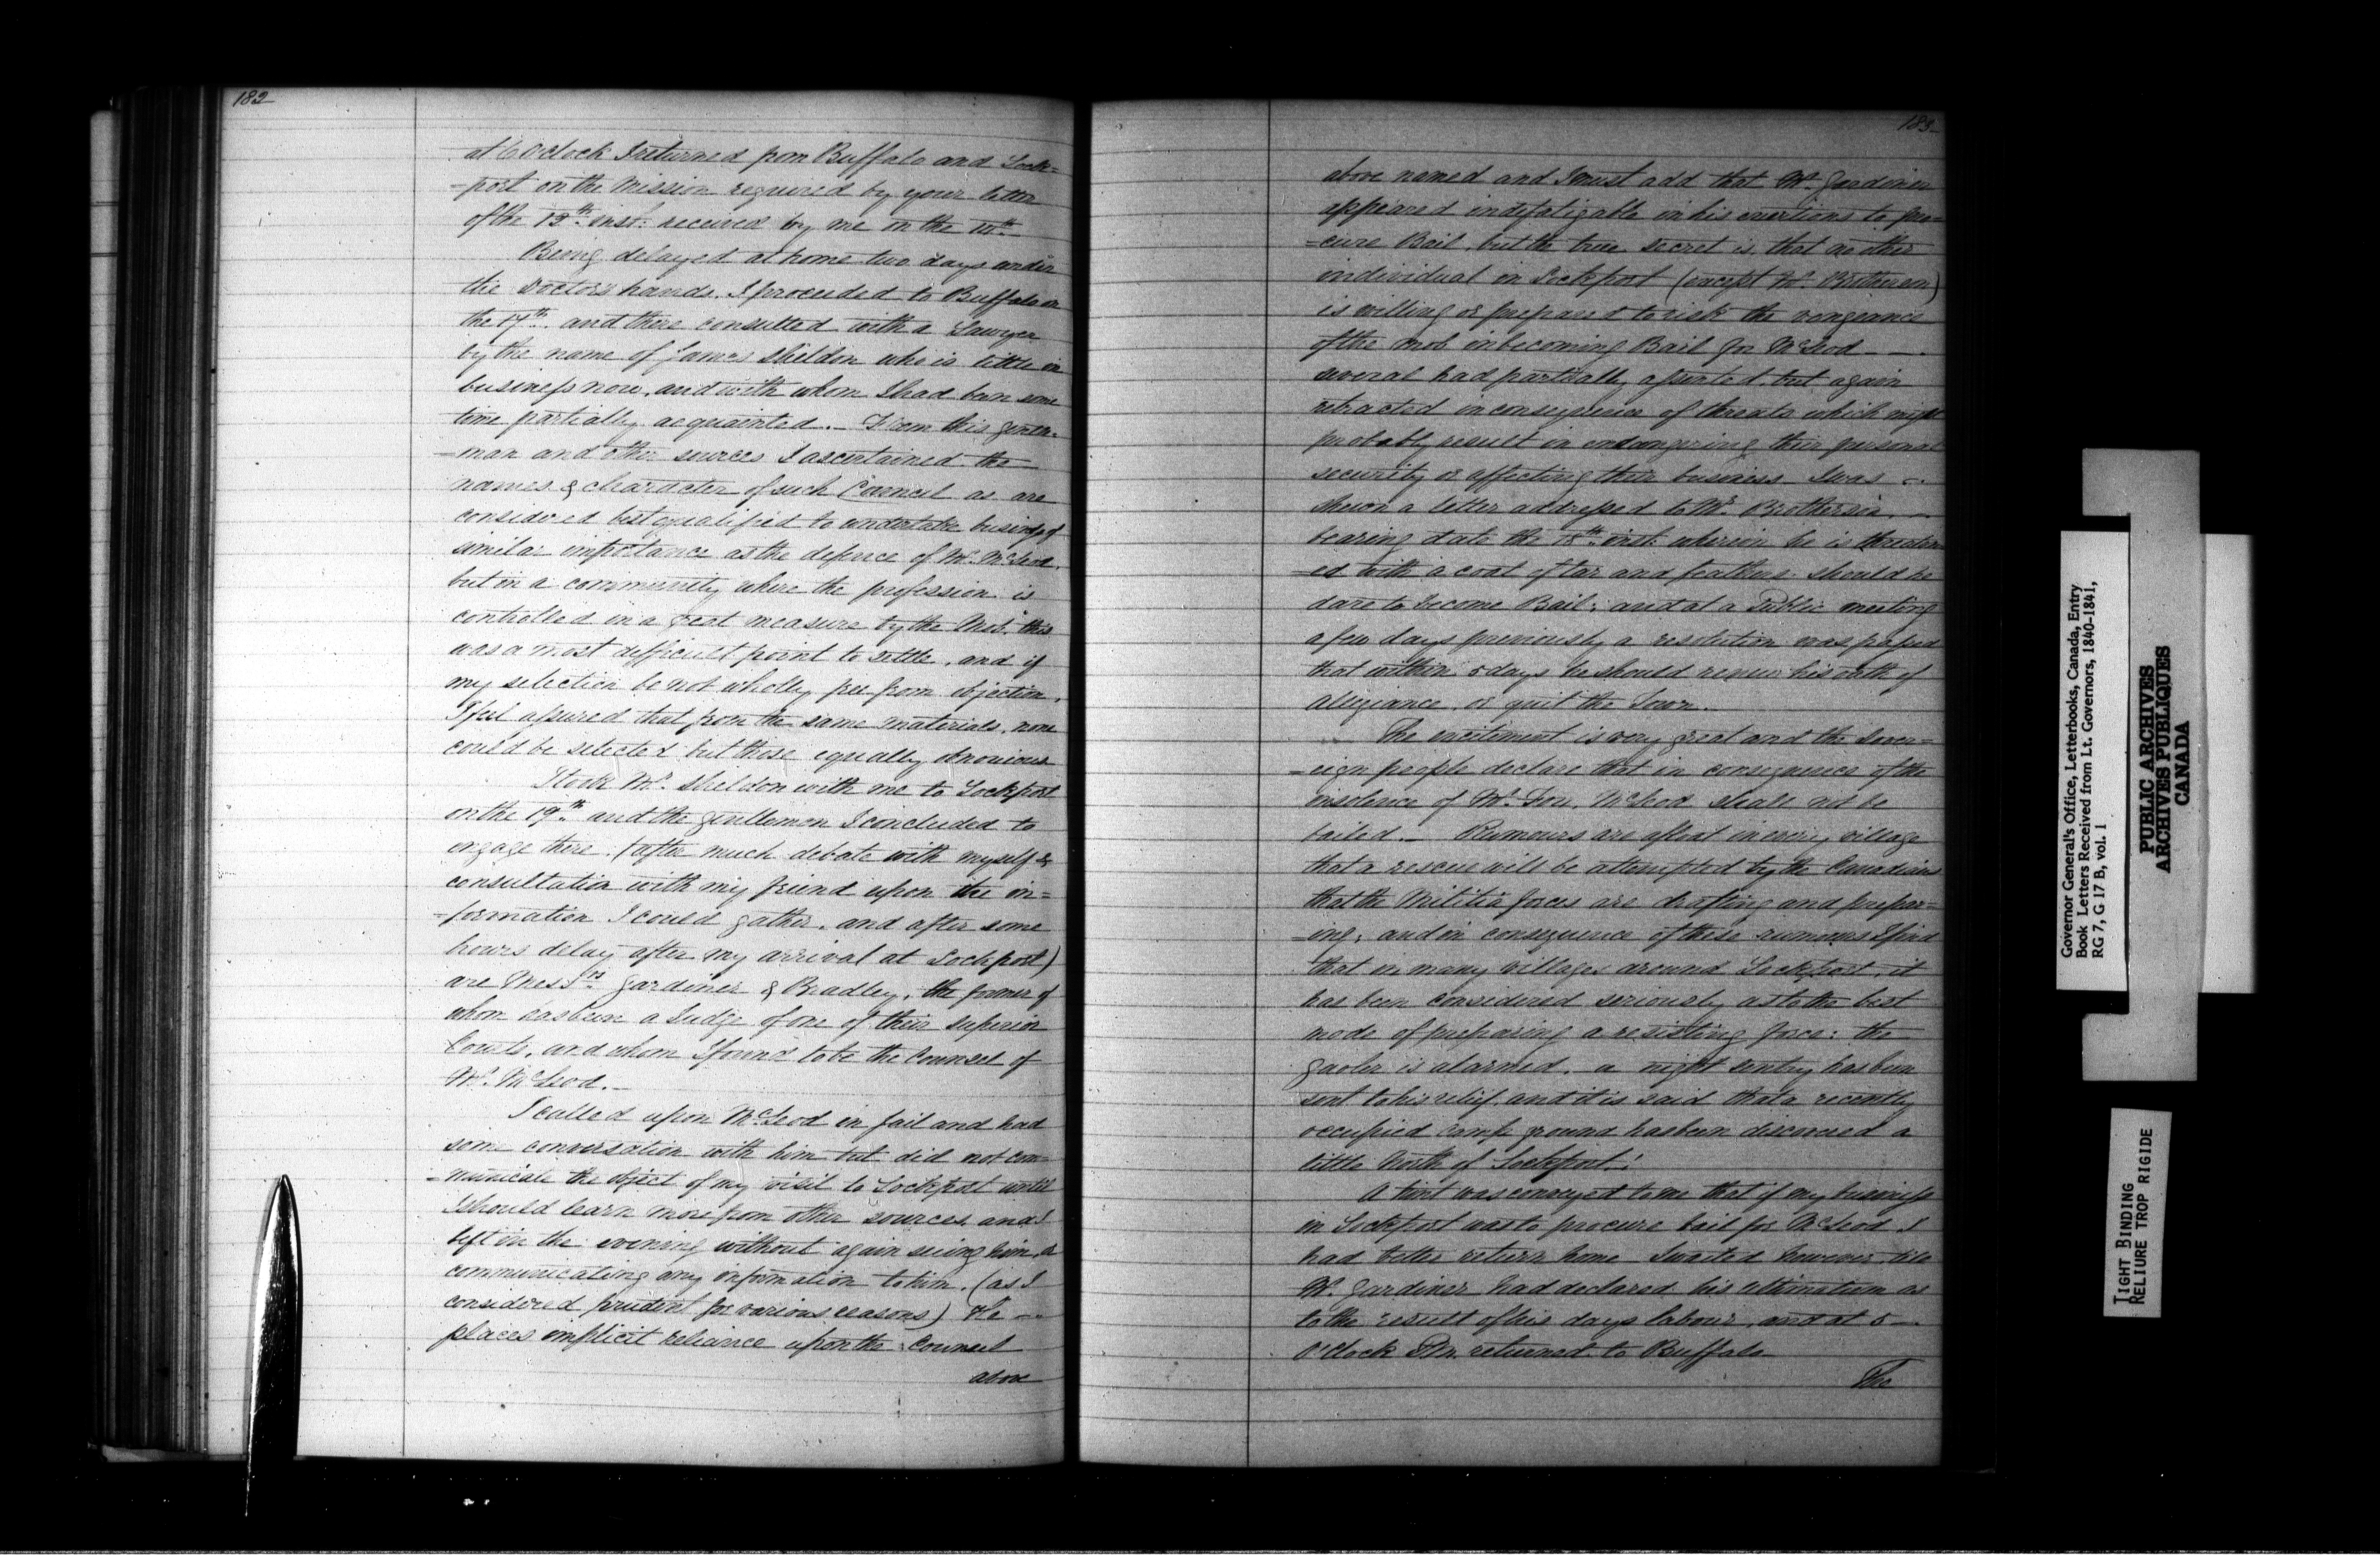 182
at 6 O'clock I returned from Buffalo and Lock=
=port on the Mission required by your letter
of the 13th inst: received by me on the
Being delayed at home two days under
the Doctor's hands. I proceeded to Buffalo on
the 17th and there consulted with a Lawyer
by the name of James Sheldon who is little in
business now, and with whom I had been some
time partially acquainted._ From this gentle=
=man and other sources I ascertained the
names & character of such Council as are
considered best qualified to undertake business of
similar importance as the defence of Mr. McLeod.
but in a community where the profession is
controlled in a great measure by the Mob, this
was a most difficult point to settle, and if
my selection be not wholly free from objection,
I feel assured that from the same materials, none
could be selected but those equally obnoxious
I took Mr. Sheldon with me to Lockport
on the 19th and the gentlemen I concluded to
engage there, (after much debate with myself &
consultation with my friend upon the in=
=formation I could gather, and after some
hours delay after my arrival at Lockport)
are Messrs Gardiner & Bradley, the former of
whom has been a Judge of one of their superior
Courts, and whom I found to be the Counsel of
Mr. McLeod._
I called upon McLeod in jail and had
some conversation with him but did not com=
=municate the object of my visit to Lockport until
I should learn more from other sources and I
left in the evening without again seeing him, or
communicating any information to him. (as I
considered prudent for various reasons) He
places implicit reliance upon the Counsel
above
183
above named and I must add that Mr. Gardiner
appeared indefatigable in his exertions to pro=
=cure Bail, but the true secret is, that no other
individual in Lockport (except Mr. Brotherson)
is willing or prepared to risk the vengeance
of the mob in becoming Bail for McLeod _ _
several had partially assented, but again
retracted in consequence of threats which might
probably result in endangering their personal
security or affecting their business I was
shewn a letter addressed to Mr. Brotherson
bearing date the 18th inst: wherein he is threaten
=ed with a coat of tar and feathers should he
dare to become Bail; and at a Public meeting
a few days previously a resolution was passed
that within 5 days he should renew his oath of
Allegiance, or quit the Town._
The excitement is very great and the Sover=
=eign people declare that in consequence of the
insolence of Mr. Fox, McLeod shall not be
bailed._ Rumours are afloat in every village
that a rescue will be attempted by the Canadians
that the Militia forces are drafting and prepar=
=ing, and in consequence of these rumours I find
that in many villages around Lockport, it
has been considered seriously as to the best
mode of preparing a resisting force: the
gaoler is alarmed, a night sentry has been
sent to his relief, and it is said that a recently
occupied camp ground has been discovered a
little North of Lockport!
A hint was conveyed to me that if my business
in Lockport was to procure bail for McLeod I
had better return home I waited however till
Mr. Gardiner had declared his ultimatum as
to the result of his days labour, and at 5 _
O'Clock P.M. returned to Buffalo
The
Governor General's Office, Letterbooks, Canada, Entry
Book Letters Received from Lt. Governors, 1840-1841,
RG 7, G 17 B, vol. 1
PUBLIC ARCHIVES
ARCHIVES PUBLIQUES
CANADA
TIGHT BINDING
RELIURE TROP RIGIDE